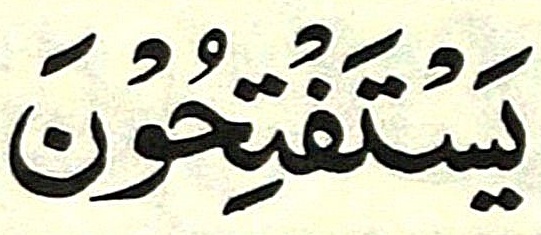 يَسْتَفْتِحُوْنَ